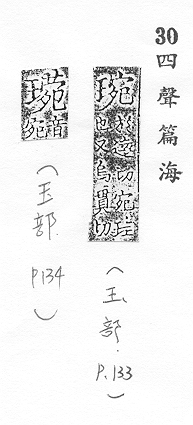 30
四聲篇海
琬
於阮切宛圭
也又烏貫切
(玉部. P.133)
音
宛
(玉部. P.134)